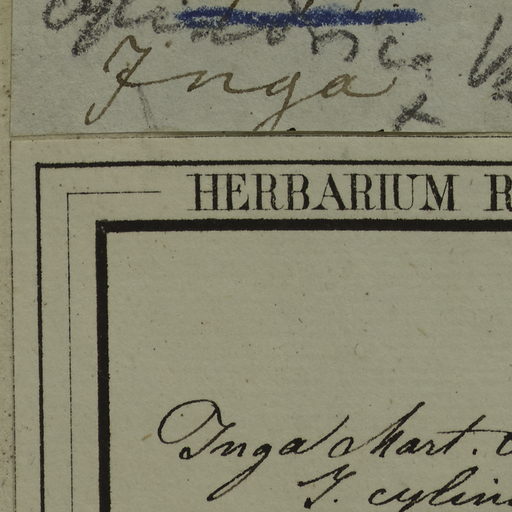 Inga
HERBARIUM R
Inga Mart.
I. cylin